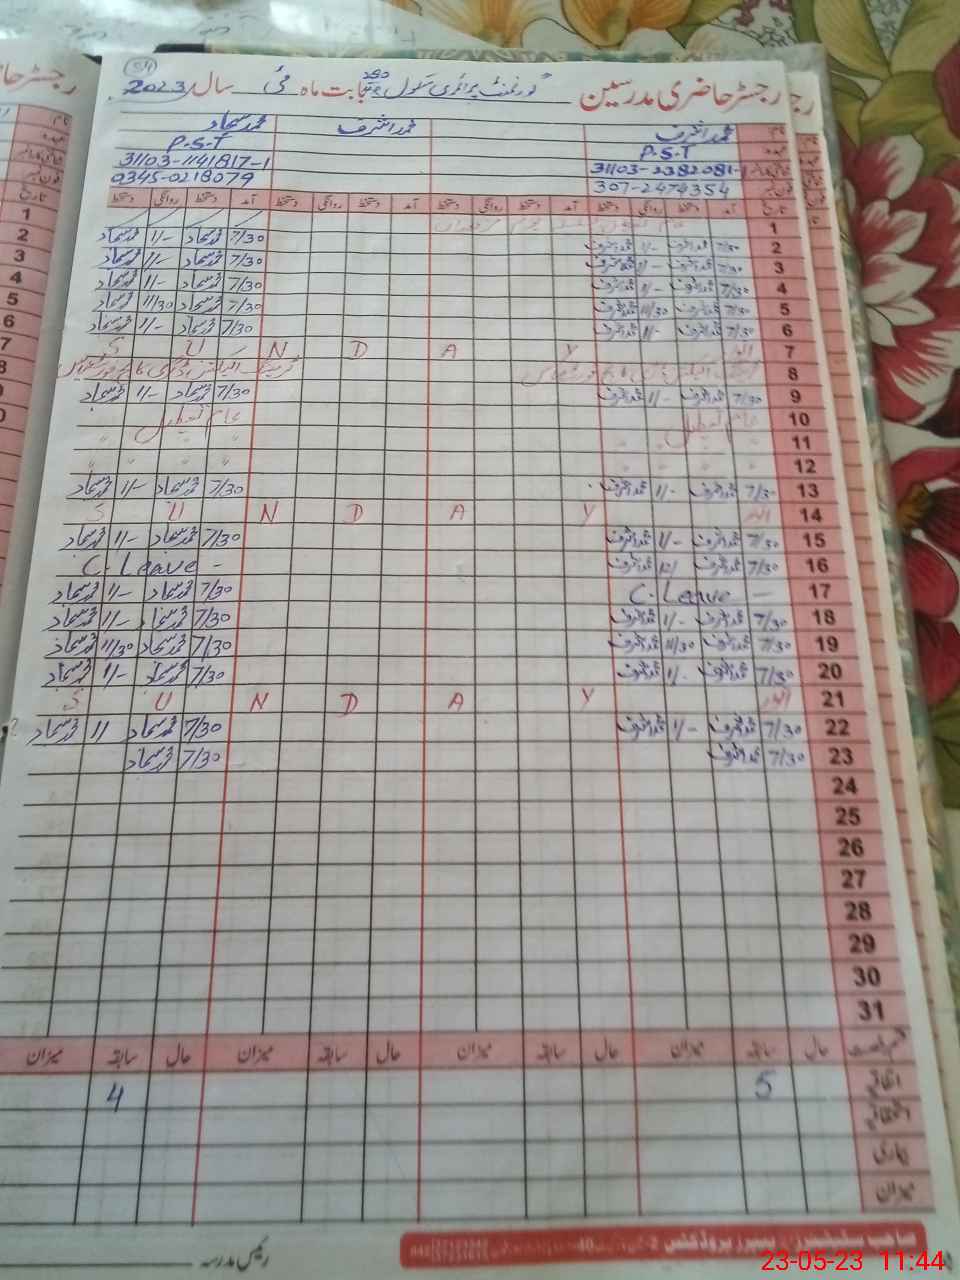 54
رجسٹر حاضری مدرسین گورنمنٹ پرائمری سکول بابت ماہ مئی سال 2023
نام محمد اشرف محمد اشرف محمد سجاد
عہدہ P.S.T P.S.T
31103-2382081-1 31103-1141817-1
307-2474354 0345-0218079
تاریخ آمد دستخط روانگی دستخط آمد دستخط روانگی دستخط آمد دستخط روانگی دستخط آمد دستخط روانگی دستخط
1
2 7/30 محمد اشرف 1/- محمد اشرف 7/30 محمد سجاد 1/- محمد سجاد
3 7/30 محمد اشرف 1/- محمد اشرف 7/30 محمد سجاد 1/- محمد سجاد
4 7/30 محمد اشرف 1/- محمد اشرف 7/30 محمد سجاد 1/- محمد سجاد
5 7/30 محمد اشرف 11/30 محمد اشرف 7/30 محمد سجاد 11/30 محمد سجاد
6 7/30 محمد اشرف 1/- محمد اشرف 7/30 محمد سجاد 1/- محمد سجاد
7 اتوار S U N D A Y
8
9 7/30 محمد اشرف 1/- محمد اشرف 7/30 محمد سجاد 1/- محمد سجاد
10 عام تعطیل عام تعطیل
11 " " " " " " " "
12 " " " " " " " "
13 7/30 محمد اشرف 1/- محمد اشرف 7/30 محمد سجاد 1/- محمد سجاد
14 اتوار S U N D A Y
15 7/30 محمد اشرف 1/- محمد اشرف 7/30 محمد سجاد 1/- محمد سجاد
16 7/30 محمد اشرف محمد اشرف C. Leave -
17 C. Leave - 7/30 محمد سجاد 1/- محمد سجاد
18 7/30 محمد اشرف 1/- محمد اشرف 7/30 محمد سجاد 1/- محمد سجاد
19 7/30 محمد اشرف 11/30 محمد اشرف 7/30 محمد سجاد 11/30 محمد سجاد
20 7/30 محمد اشرف 1/- محمد اشرف 7/30 محمد سجاد 1/- محمد سجاد
21 اتوار S U N D A Y
22 7/30 محمد اشرف 1/- محمد اشرف 7/30 محمد سجاد 1/ محمد سجاد
23 7/30 محمد اشرف 7/30 محمد سجاد
24
25
26
27
28
29
30
31
قسم رخصت حال سابقہ میزان حال سابقہ میزان حال سابقہ میزان حال سابقہ میزان
اتفاقیہ 5 4
استحقاقیہ
بیماری
میزان
رئیس مدرسہ
23-05-23 11:44